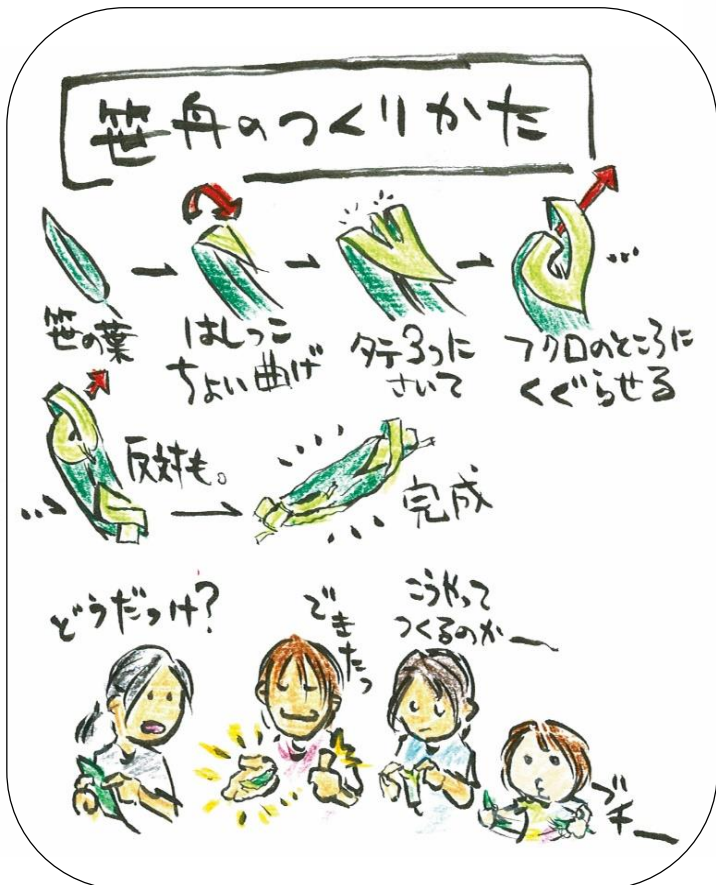 笹舟のつくりかた
笹の葉
はしっこ
ちょい曲げ
タテ3つに
さいて
フクロのところに
くぐらせる
反対も。
完成
どうだっけ?
できたっ
こうやって
つくるのかー
ブチー